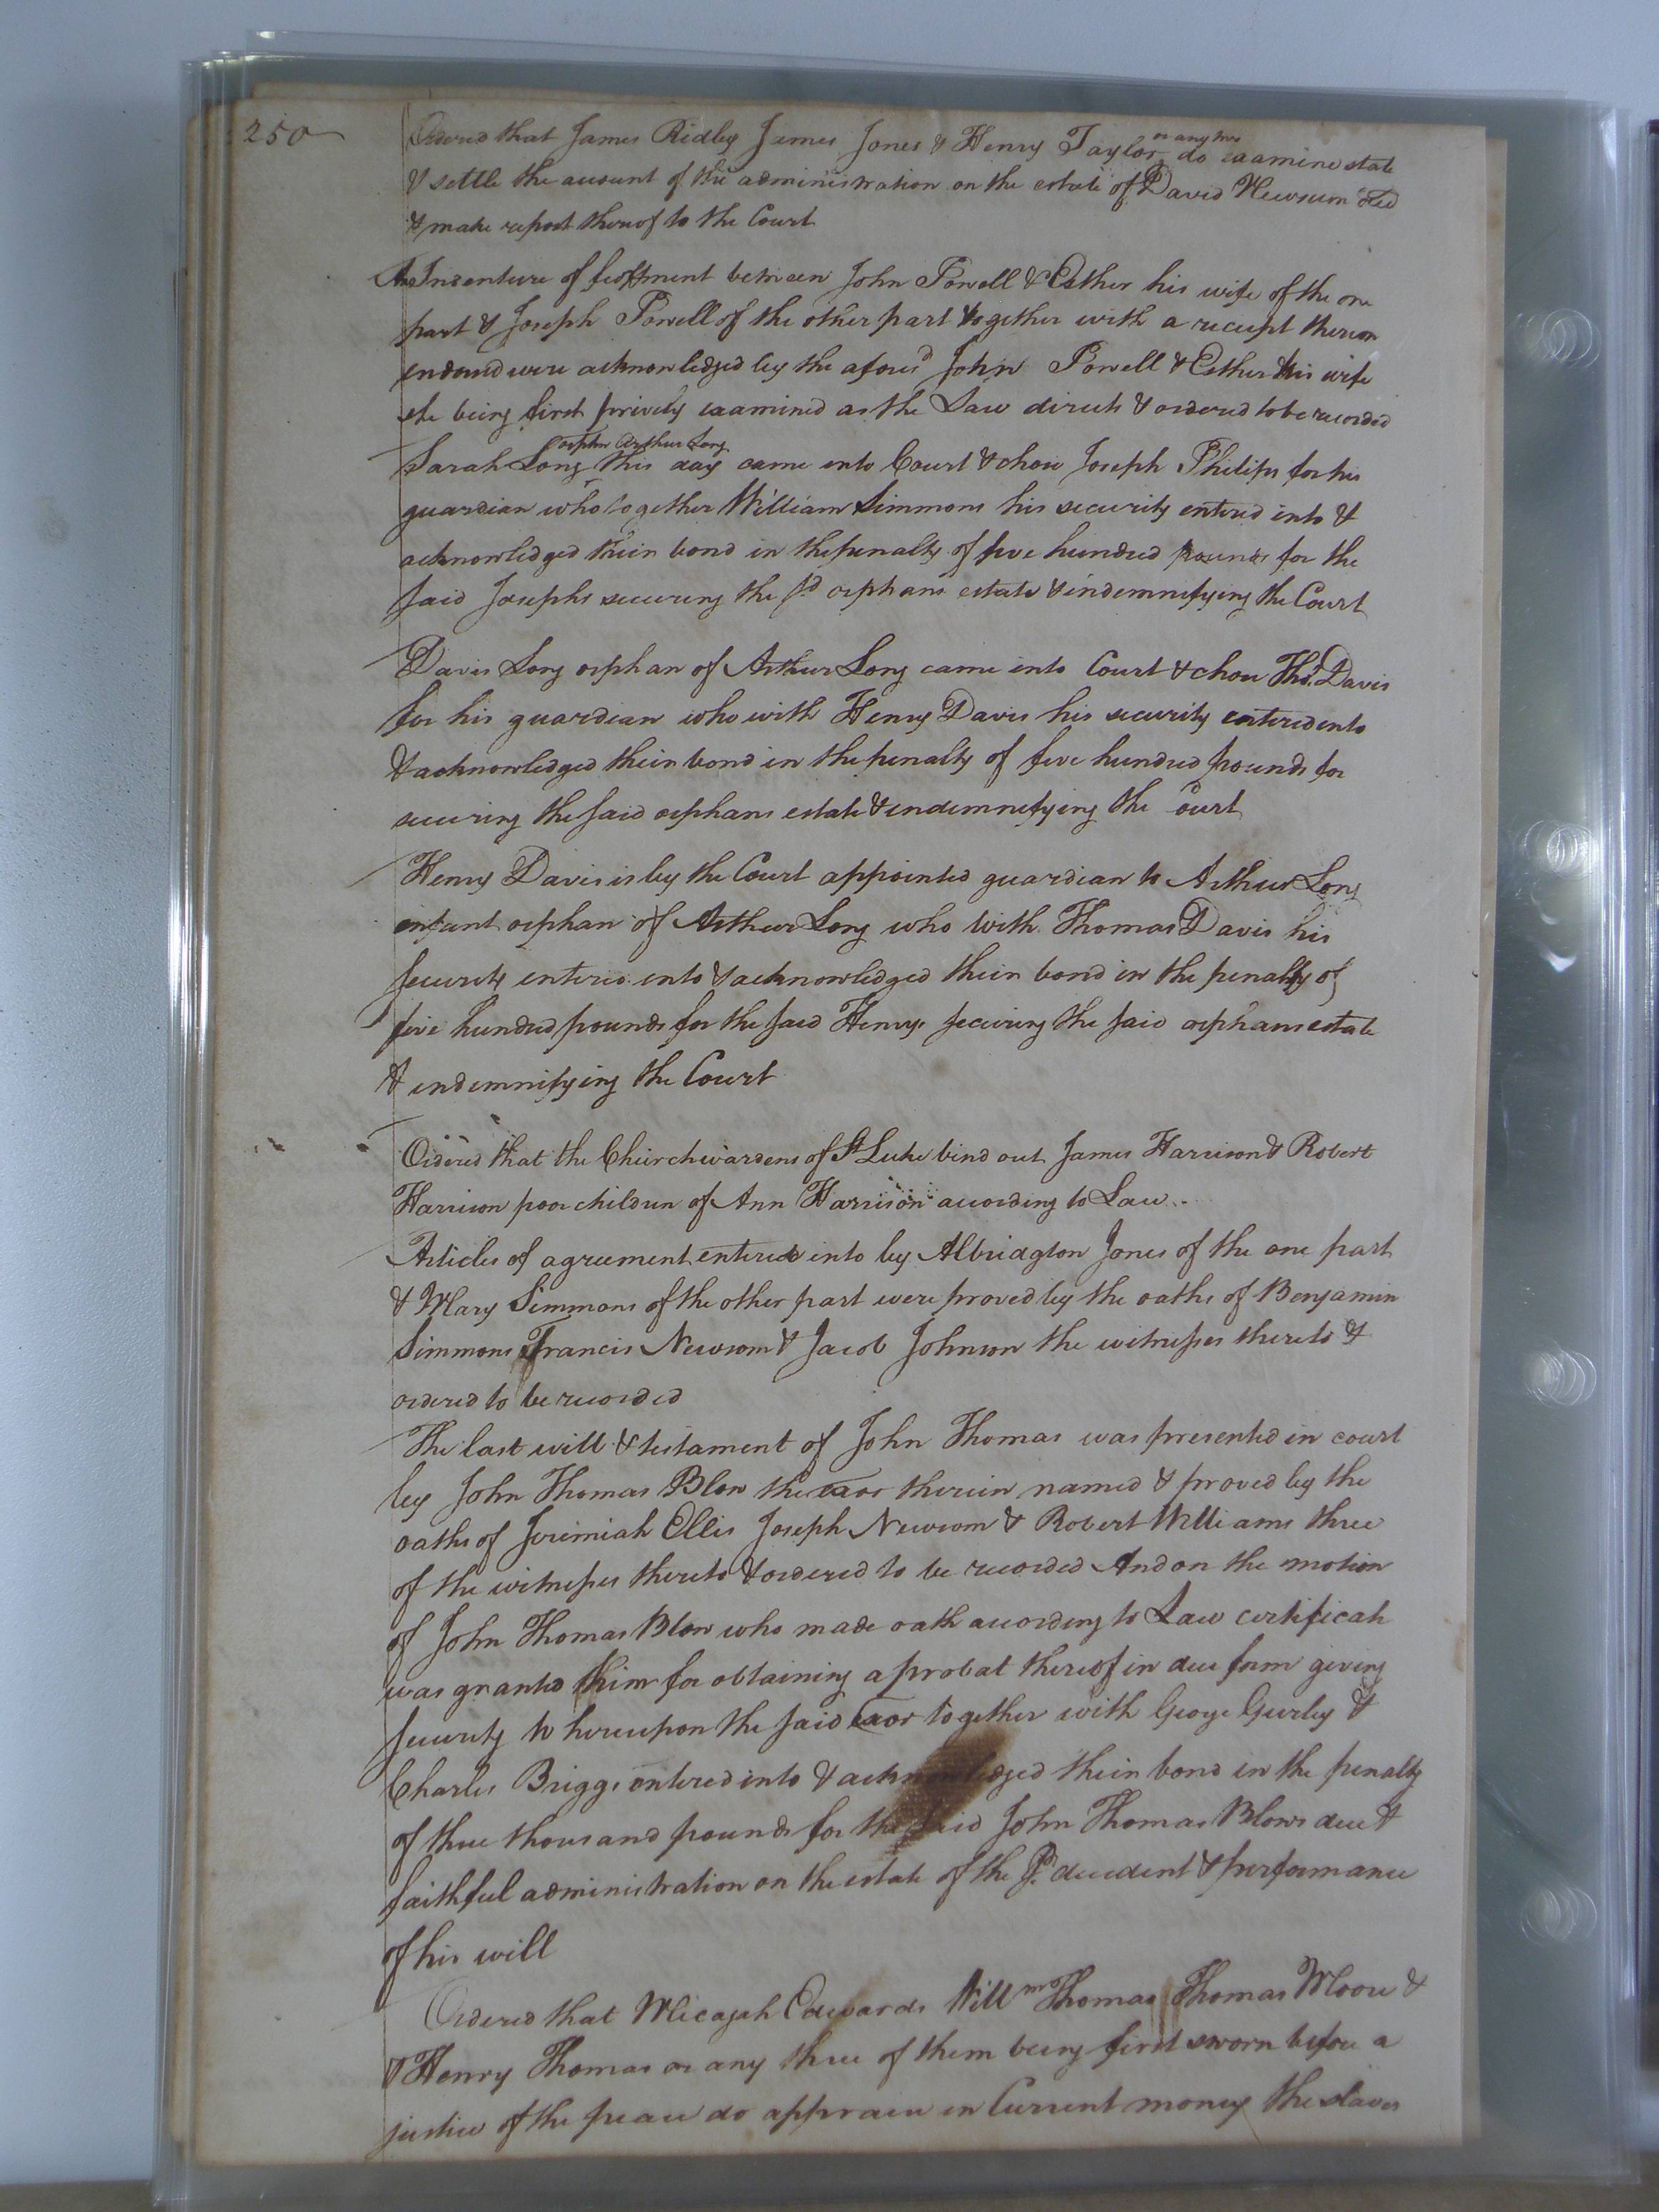 250
Ordered that James Ridley James Jones & Henry Taylor or any two do examine state
& settle the account of the administration on the estate of David Newsum decd
& make report thereof to the Court
An Indenture of feoffment between John Powell & Esther his wife of the one
part & Joseph Powell of the other part together with a receipt thereon
endorsed were acknowledged by the afores'd John Powell & Esther his wife
she being first privily examined as the Law directs & ordered to be recorded
Sarah Long orphn Arthur Long this day came into Court & chose Joseph Philips for his
guardian who together William Simmons his security entered into &
acknowledged their bond in the penalty of five hundred pounds for the
said Josephs securing the sd orphans estate & indemnifying the Court
Davis Long orphan of Arthur Long came into Court & chose Thos. Davis
for his guardian who with Henry Davis his security entered into
& acknowledged their bond in the penalty of five hundred pounds for
securing the said orphans estate & indemnifying the Court
Henry Davis is by the Court appointed guardian to Arthur Long
infant orphan of Arthur Long who with Thomas Davis his
security entered into & acknowledged their bond in the penalty of
five hundred pounds for the said Henry securing the said orphans estate
& indemnifying the Court
Ordered that the Churchwardens of St Luke bind out James Harrison & Robert
Harrison poor children of Ann Harrison according to Law
Articles of agreement entered into by Albridgton Jones of the one part
& Mary Simmons of the other part were proved by the oaths of Benjamin
Simmons Francis Newsom & Jacob Johnson the witnesses thereto &
ordered to be recorded
The last will & testament of John Thomas was presented in court
by John Thomas Blow the exor therein named & proved by the
oaths of Jeremiah Ellis Joseph Newsom & Robert Williams three
of the witnesses thereto & ordered to be recorded And on the motion
of John Thomas Blow who made oath according to Law certificate
was granted him for obtaining a probat thereof in due form giving
security whereupon the said Exor together with George Gurley &
Charles Briggs entered into & acknowledged their bond in the penalty
of three thousand pounds for the said John Thomas Blows due &
faithful administration on the estate of the sd decedent & performance
of his will
Ordered that Micajah Edwards Willm Thomas Thomas Moore &
& Henry Thomas or any three of them being first sworn before a
justice of the peace do appraise in Current money the slaves